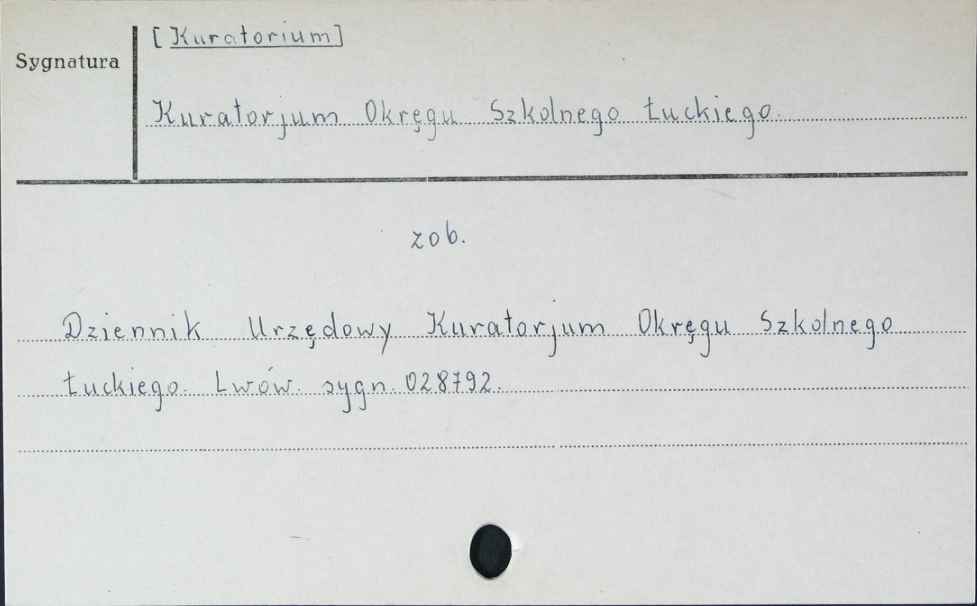 [Kuratorium]
Sygnatura
Kuratorjum Okręgu Szkolnego Łuckiego.
zob.
Dziennik Urzędowy Kuratorjum Okręgu Szkolnego
Łuckiego. Lwów. sygn. 028792.